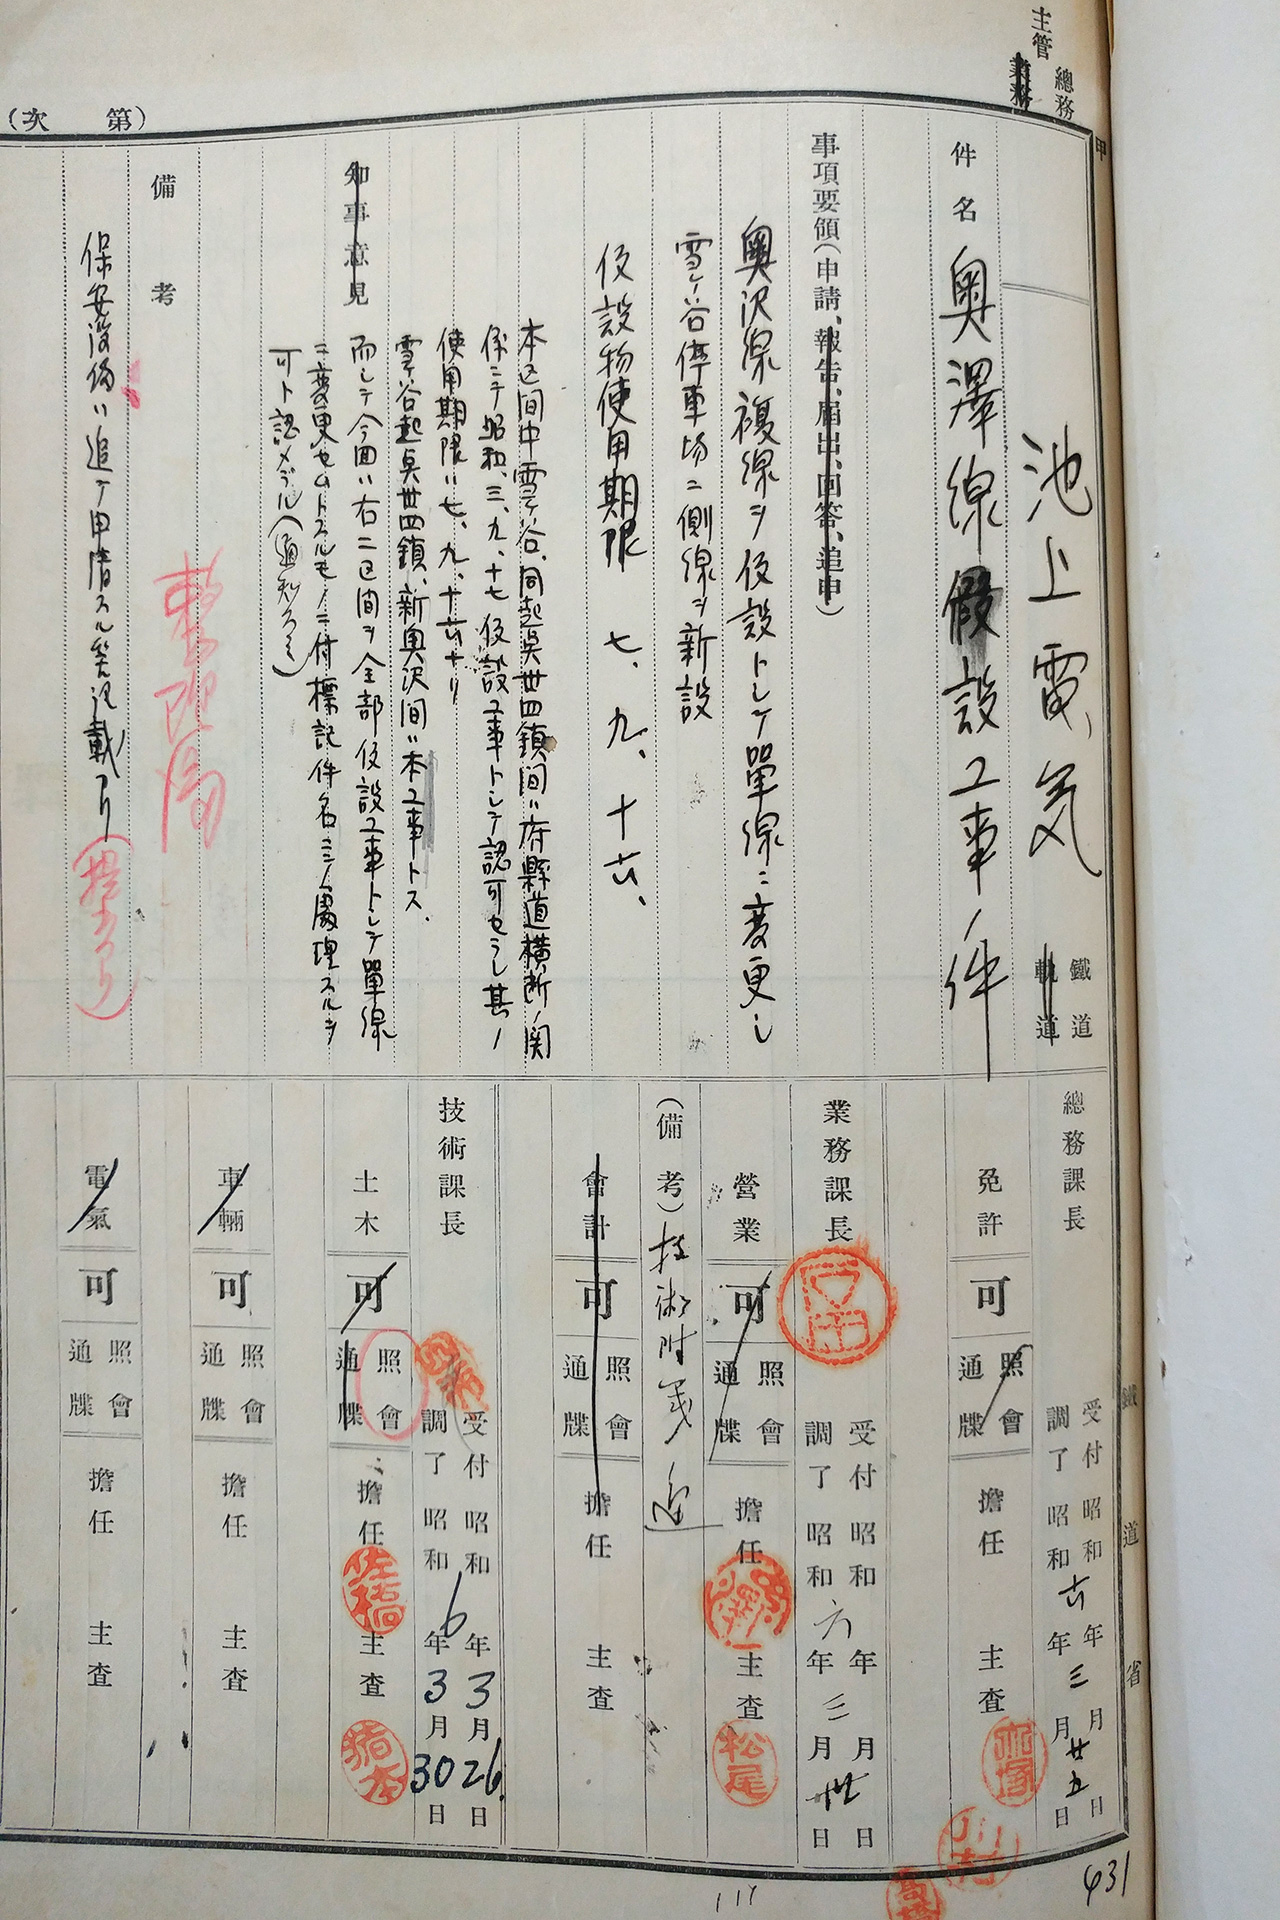 主管
總務
業務
(第　　次)
甲
池上電気
鐵道
軌道
件名
奥澤線假設工事ノ件
事項要領(申請、報告、届出、回答、追申)
奥沢線複線ヲ仮設トシテ單線ニ変更シ
雪ヶ谷停車場ニ側線ヲ新設
仮設物使用期限　七、九、十六、
本区間中雪ヶ谷、同起点丗四鎖間ハ府縣道横断ノ関
係ニテ昭和三、九、十七仮設工事トシテ認可セラレ其ノ
使用期限ハ七、九、十六ナリ
雪ヶ谷起点丗四鎖、新奥沢間ハ本工事トス、
知事意見
而シテ今回ハ右二区間ヲ全部仮設工事トシテ單線
ニ変更セムトスルモノニ付標記件名ニテ處理スルヲ
可ト認メラル
備考
保安設備ハ追テ申請スル旨記載アリ
總務課長
受付　昭和六年三月廿五日
調了　昭和　年　月　日
免許
可
照會
通牒
擔任
主査
業務課長
受付　昭和　年　月　日
調了　昭和六年三月　日
營業
可
照會
通牒
擔任
主査
松尾
(備考)技術附箋
會計
可
照會
通牒
擔任
主査
技術課長
受付　昭和6年3月26日
調了　昭和　年3月30日
土木
可
照會
通牒
擔任
主査
車輛
可
照會
通牒
擔任
主査
電氣
可
照會
通牒
擔任
主査
鐵道省
431